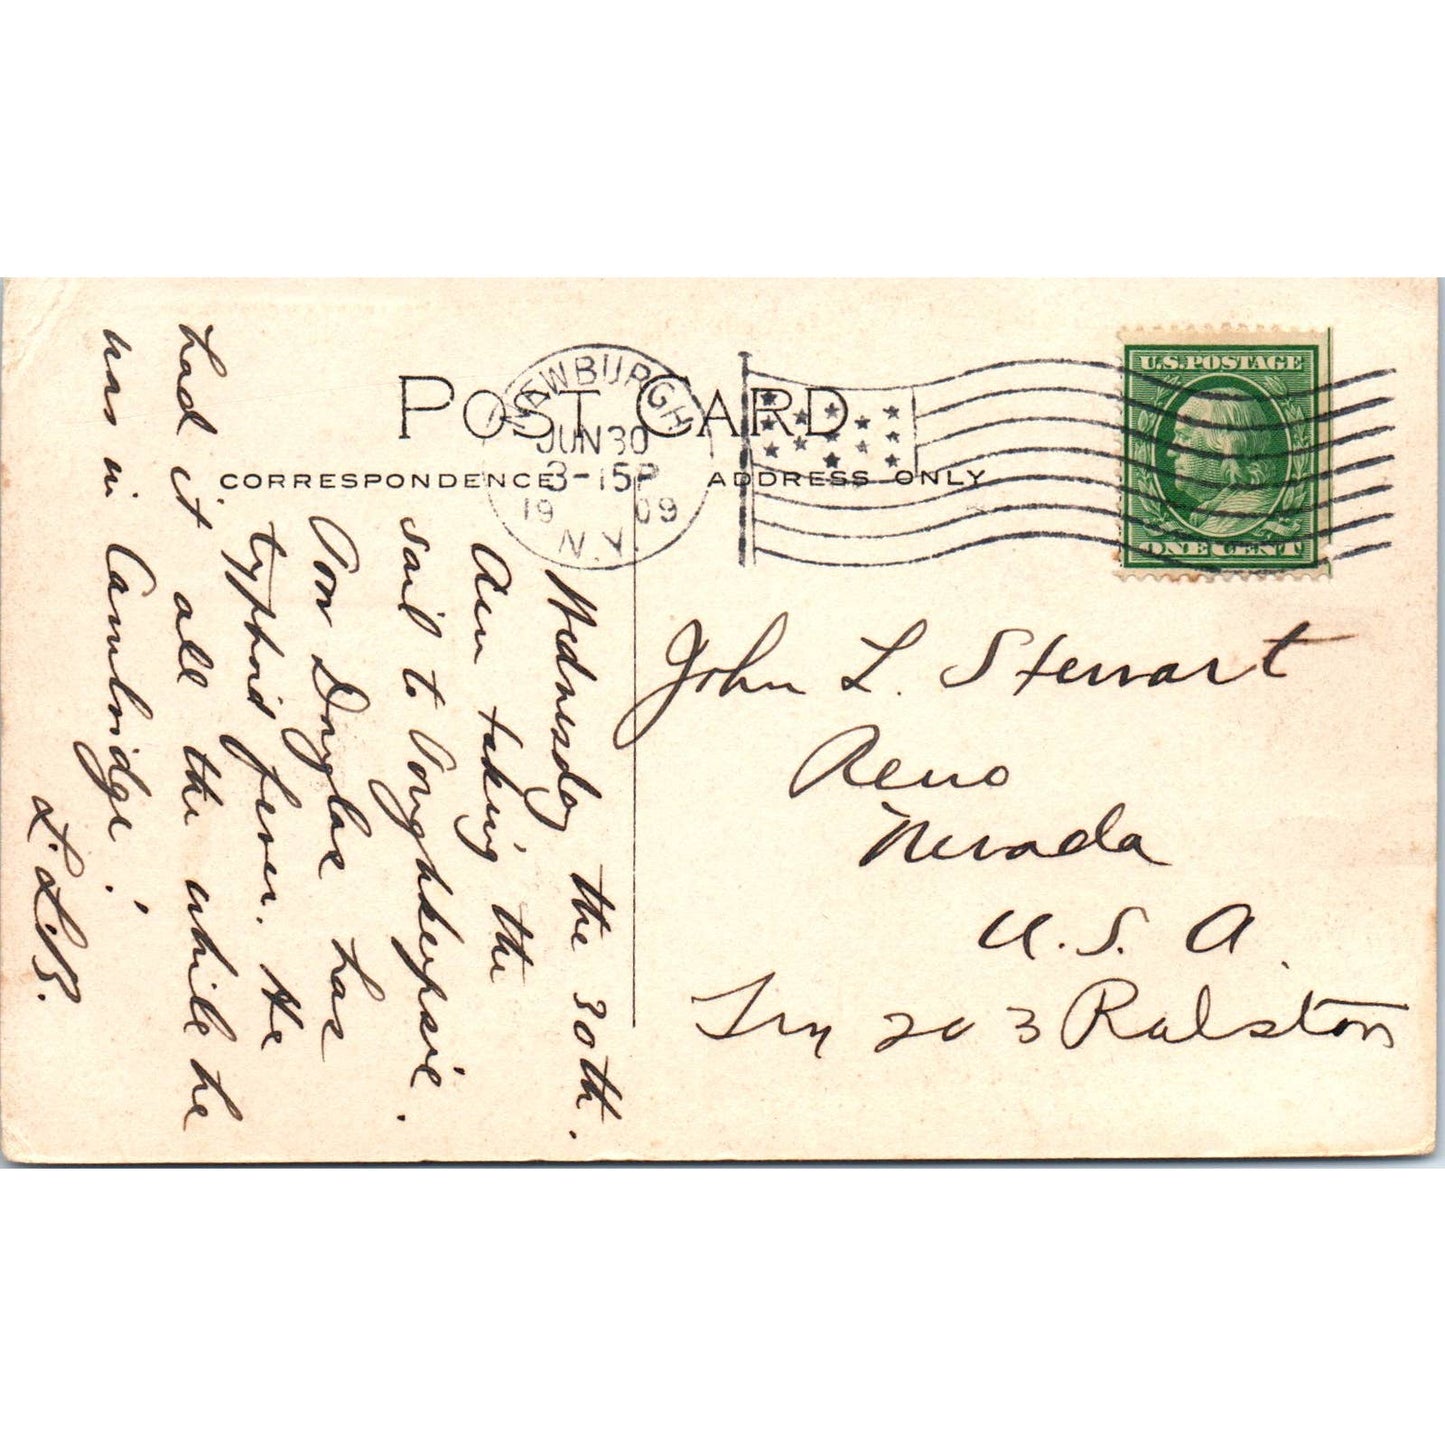 POST CARD
CORRESPONDENCE
ADDRESS ONLY
NEWBURGH
JUN 30
3-15P
19 09
N.Y.
U.S. POSTAGE
ONE CENT
Wednesday the 30th.
Am taking the
sail to Poughkeepsie.
Poor Douglas has
typhoid fever. He
had it all the while he
was in Cambridge!
L.L.B.
John L. Stewart
Reno
Nevada
U.S.A.
Try 203 Ralston